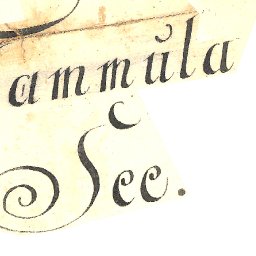 ammŭla
See.